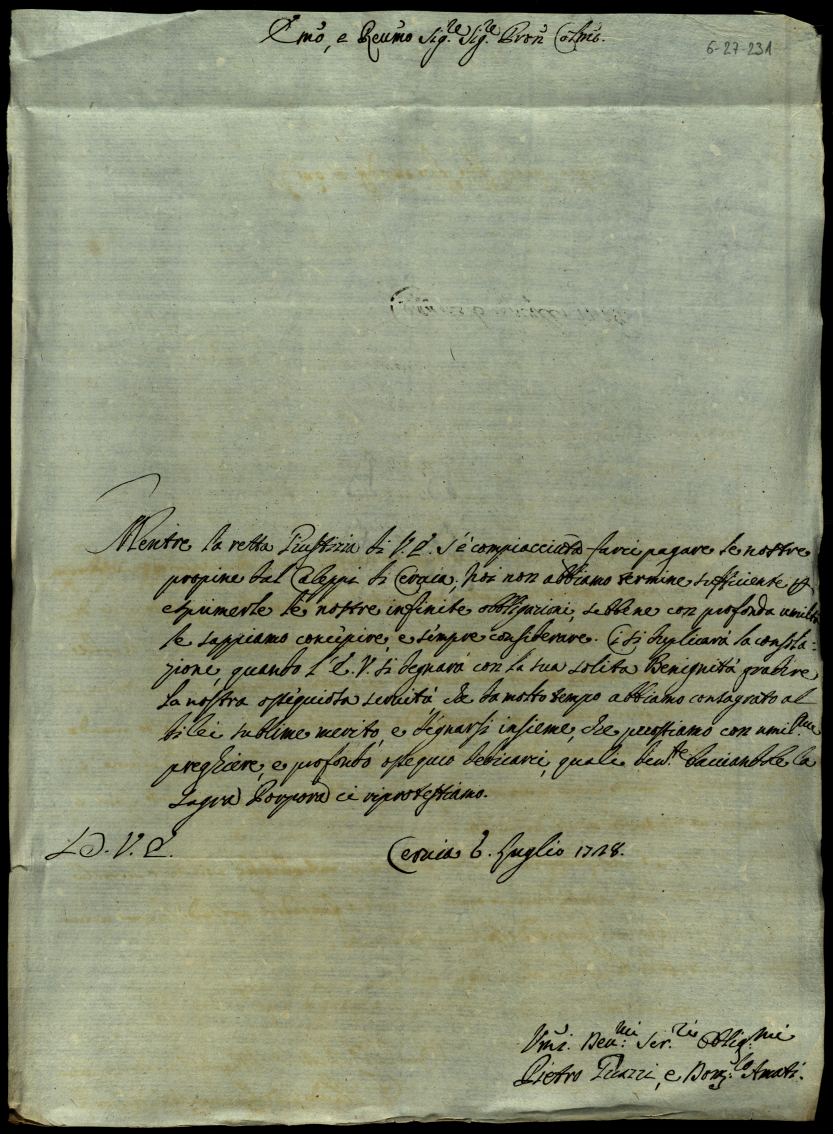 Emõ, e Reumo Sig.re Sig.re Pron Colmõ.
6-27-231
Mentre la retta Giustizia di V. E. s'è compiacciuta farci pagare le nostre
propine dal Caleppi di Ceruia, noi non abbiamo termine sufficiente p
esprimerle le nostre infinite obbligazioni, sebbene con profonda umiltà
le sappiamo concepire, e sempre considerare. Ci si duplicarà la consola=
zione, quando l'E. V. si degnarà con la sua solita Benignità gradire
la nostra ossequiosa seruitù che da molto tempo abbiamo consagrato al
di lei sublime merito, e degnarsi insieme, che possiamo con umil.me
preghiere, e profondo ossequio dedicarci, quali deu.te bacciandole la
Sagra Porpora ci riprotestiamo.
D. V. E.
Ceruia 6. Luglio 1728.
Vmi. Deu.mi Ser.ri Oblig.mi
Pietro, e Amati.